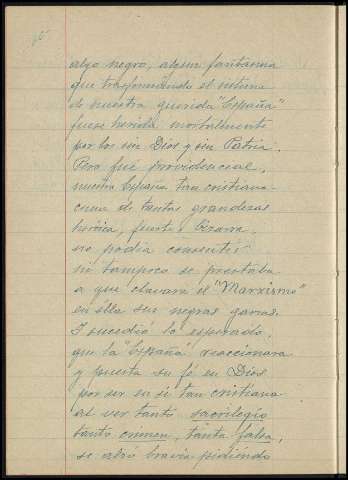 algo negro, algun fantasma
que trasformando el sistema
de nuestra querida "España"
fuese herida mortalmente
por los sin Dios y sin Patria.
Pero fué providencial,
nuestra España tan cristiana
cuna de tantas grandezas
heróica, fuerte, bizarra,
no podia consentir
ni tampoco se prestaba
a que clavara el "Marxismo"
en élla sus negras garras.
Y sucedió lo esperado,
que la "España" reaccionara
y puesta su fé en Dios
por ser en si tan cristiana
al ver tanto sacrilegio
tanto crimen, tanta falsa,
se alzó bravia pidiendo